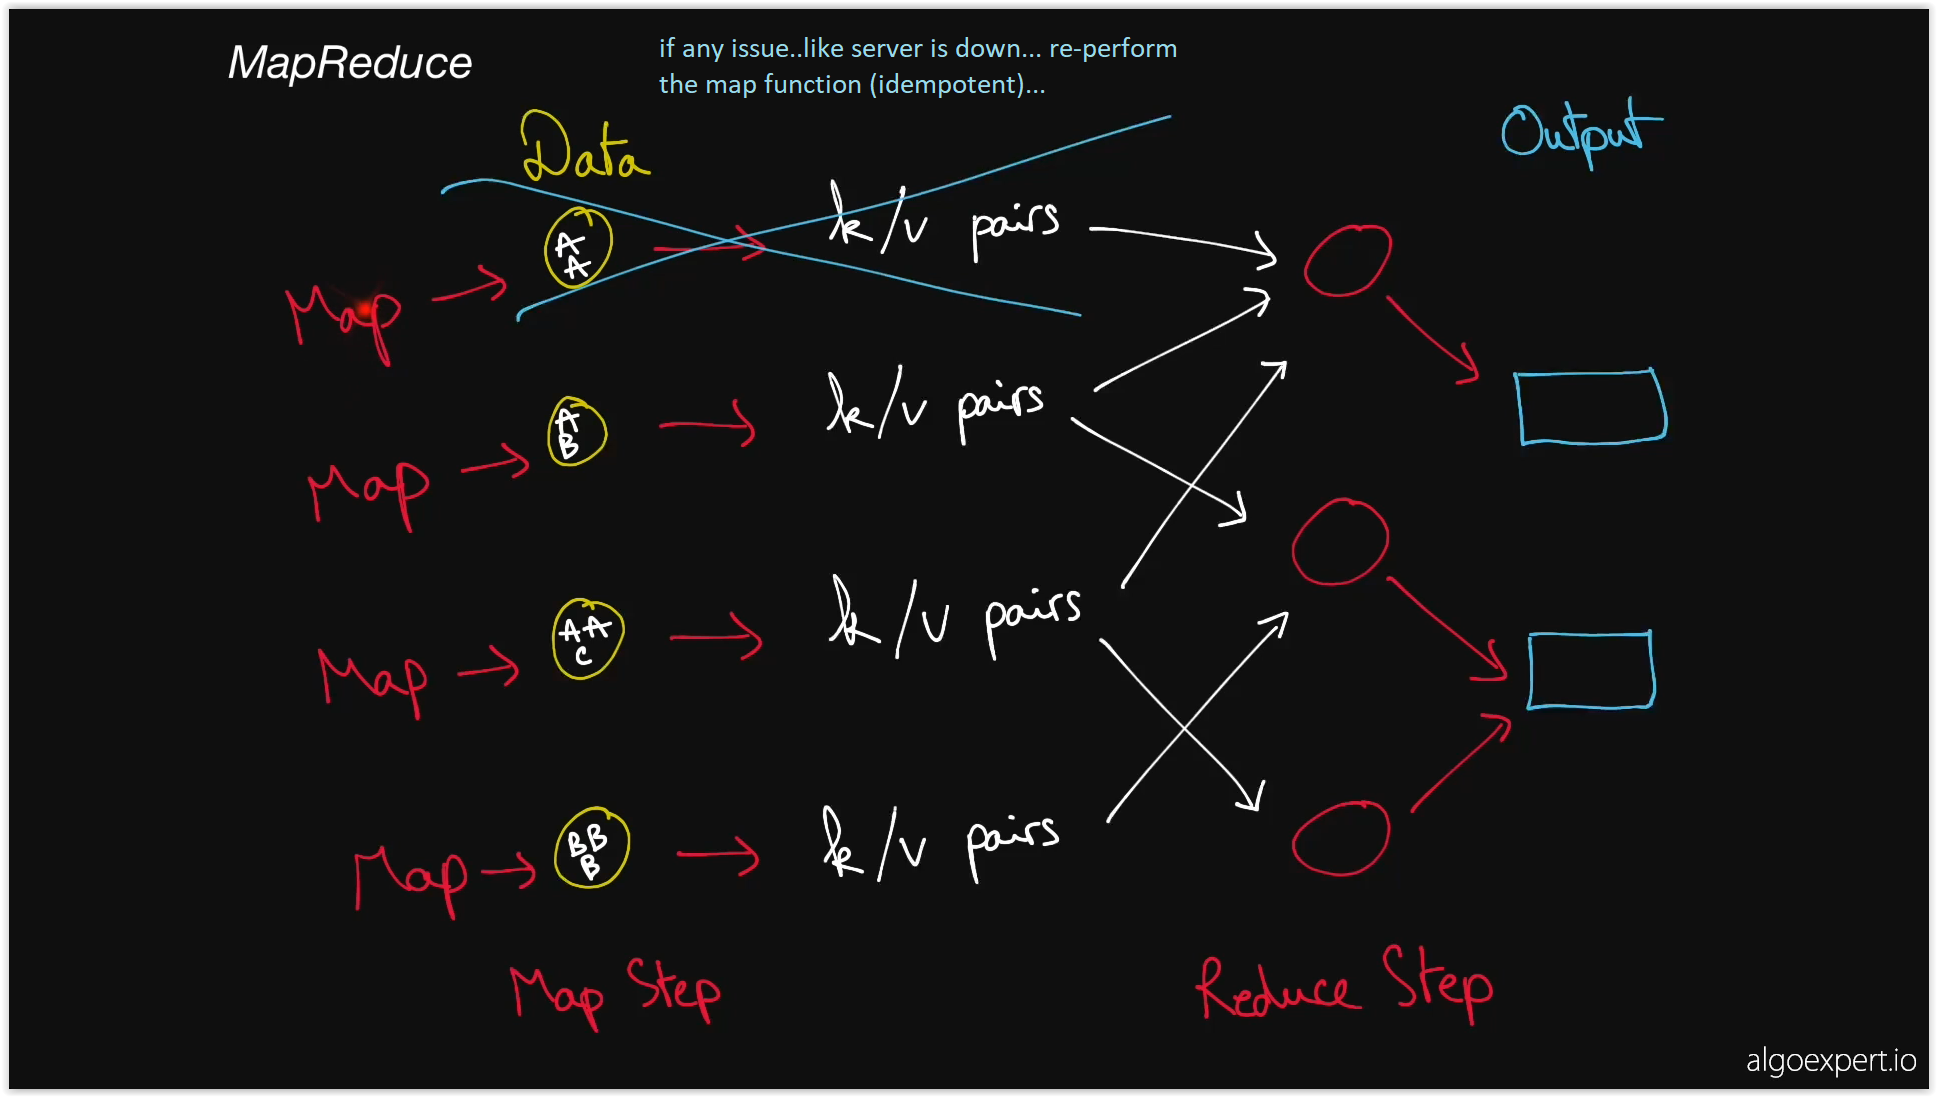 MapReduce
if any issue..like server is down... re-perform
the map function (idempotent)...
Data
Output
A
A
k/v pairs
Map
A
B
k/v pairs
Map
AA
C
k/v pairs
Map
BB
B
k/v pairs
Map
Map Step
Reduce Step
algoexpert.io